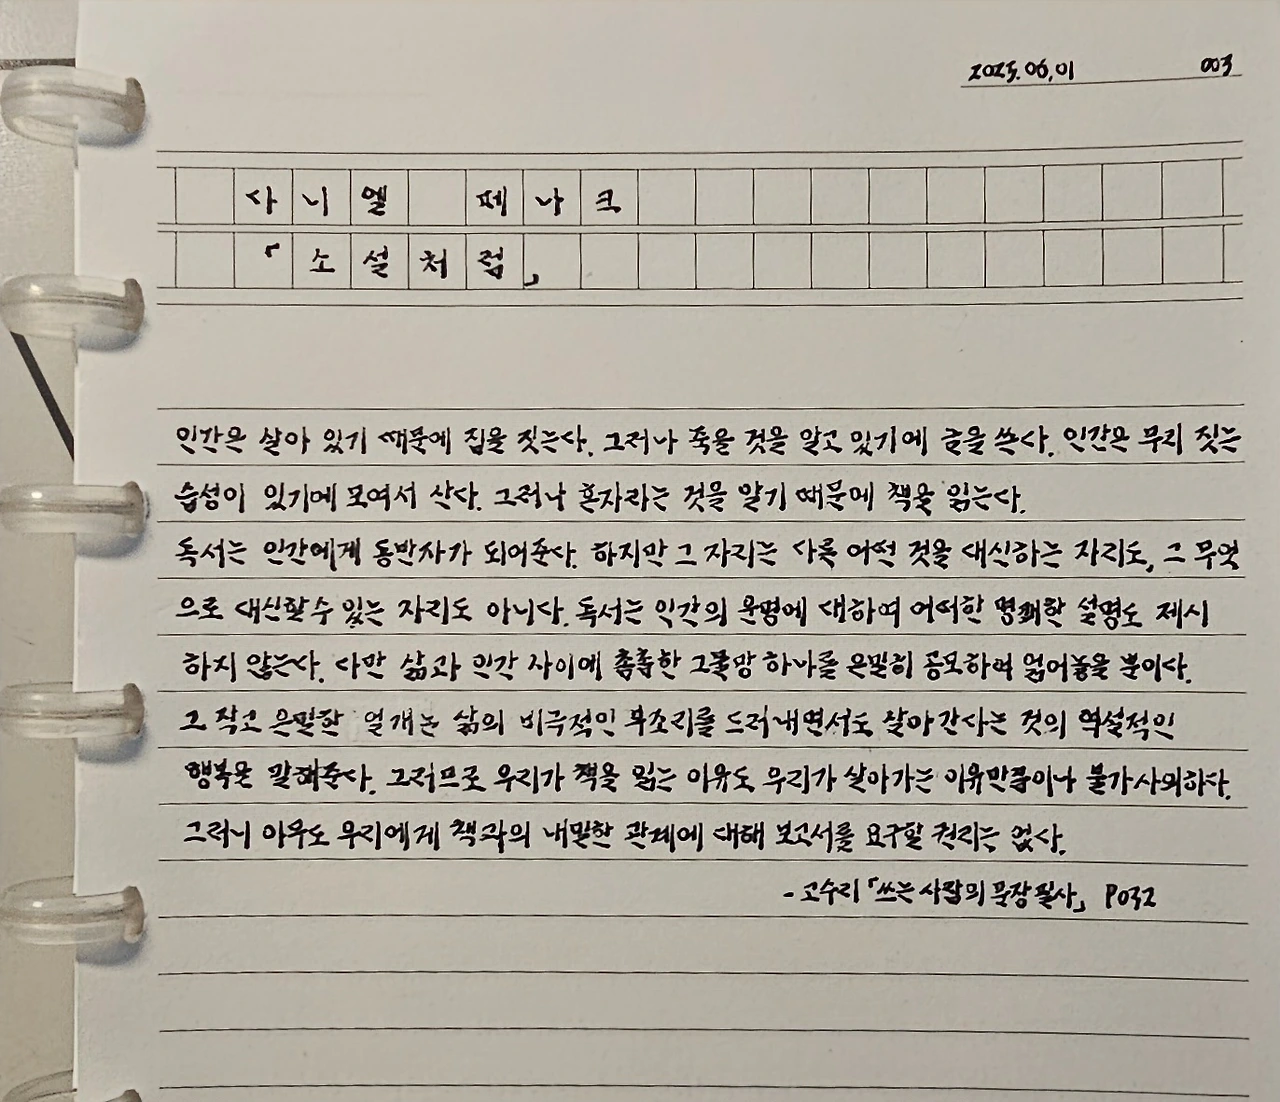 2025.06.01 003
다니엘 페나크
「소설처럼」
인간은 살아 있기 때문에 집을 짓는다. 그러나 죽을 것을 알고 있기에 글을 쓴다. 인간은 무리 짓는
습성이 있기에 모여서 산다. 그러나 혼자라는 것을 알기 때문에 책을 읽는다.
독서는 인간에게 동반자가 되어준다. 하지만 그 자리는 다른 어떤 것을 대신하는 자리도, 그 무엇
으로 대신할 수 있는 자리도 아니다. 독서는 인간의 운명에 대하여 어떠한 명쾌한 설명도 제시
하지 않는다. 다만 삶과 인간 사이에 촘촘한 그물망 하나를 은밀히 공모하여 얽어놓을 뿐이다.
그 작고 은밀한 얼개는 삶의 비극적인 부조리를 드러내면서도 살아간다는 것의 역설적인
행복을 말해준다. 그러므로 우리가 책을 읽는 이유도 우리가 살아가는 이유만큼이나 불가사의하다.
그러니 아무도 우리에게 책과의 내밀한 관계에 대해 보고서를 요구할 권리는 없다.
- 고수리 「쓰는 사람의 문장 필사」 P032